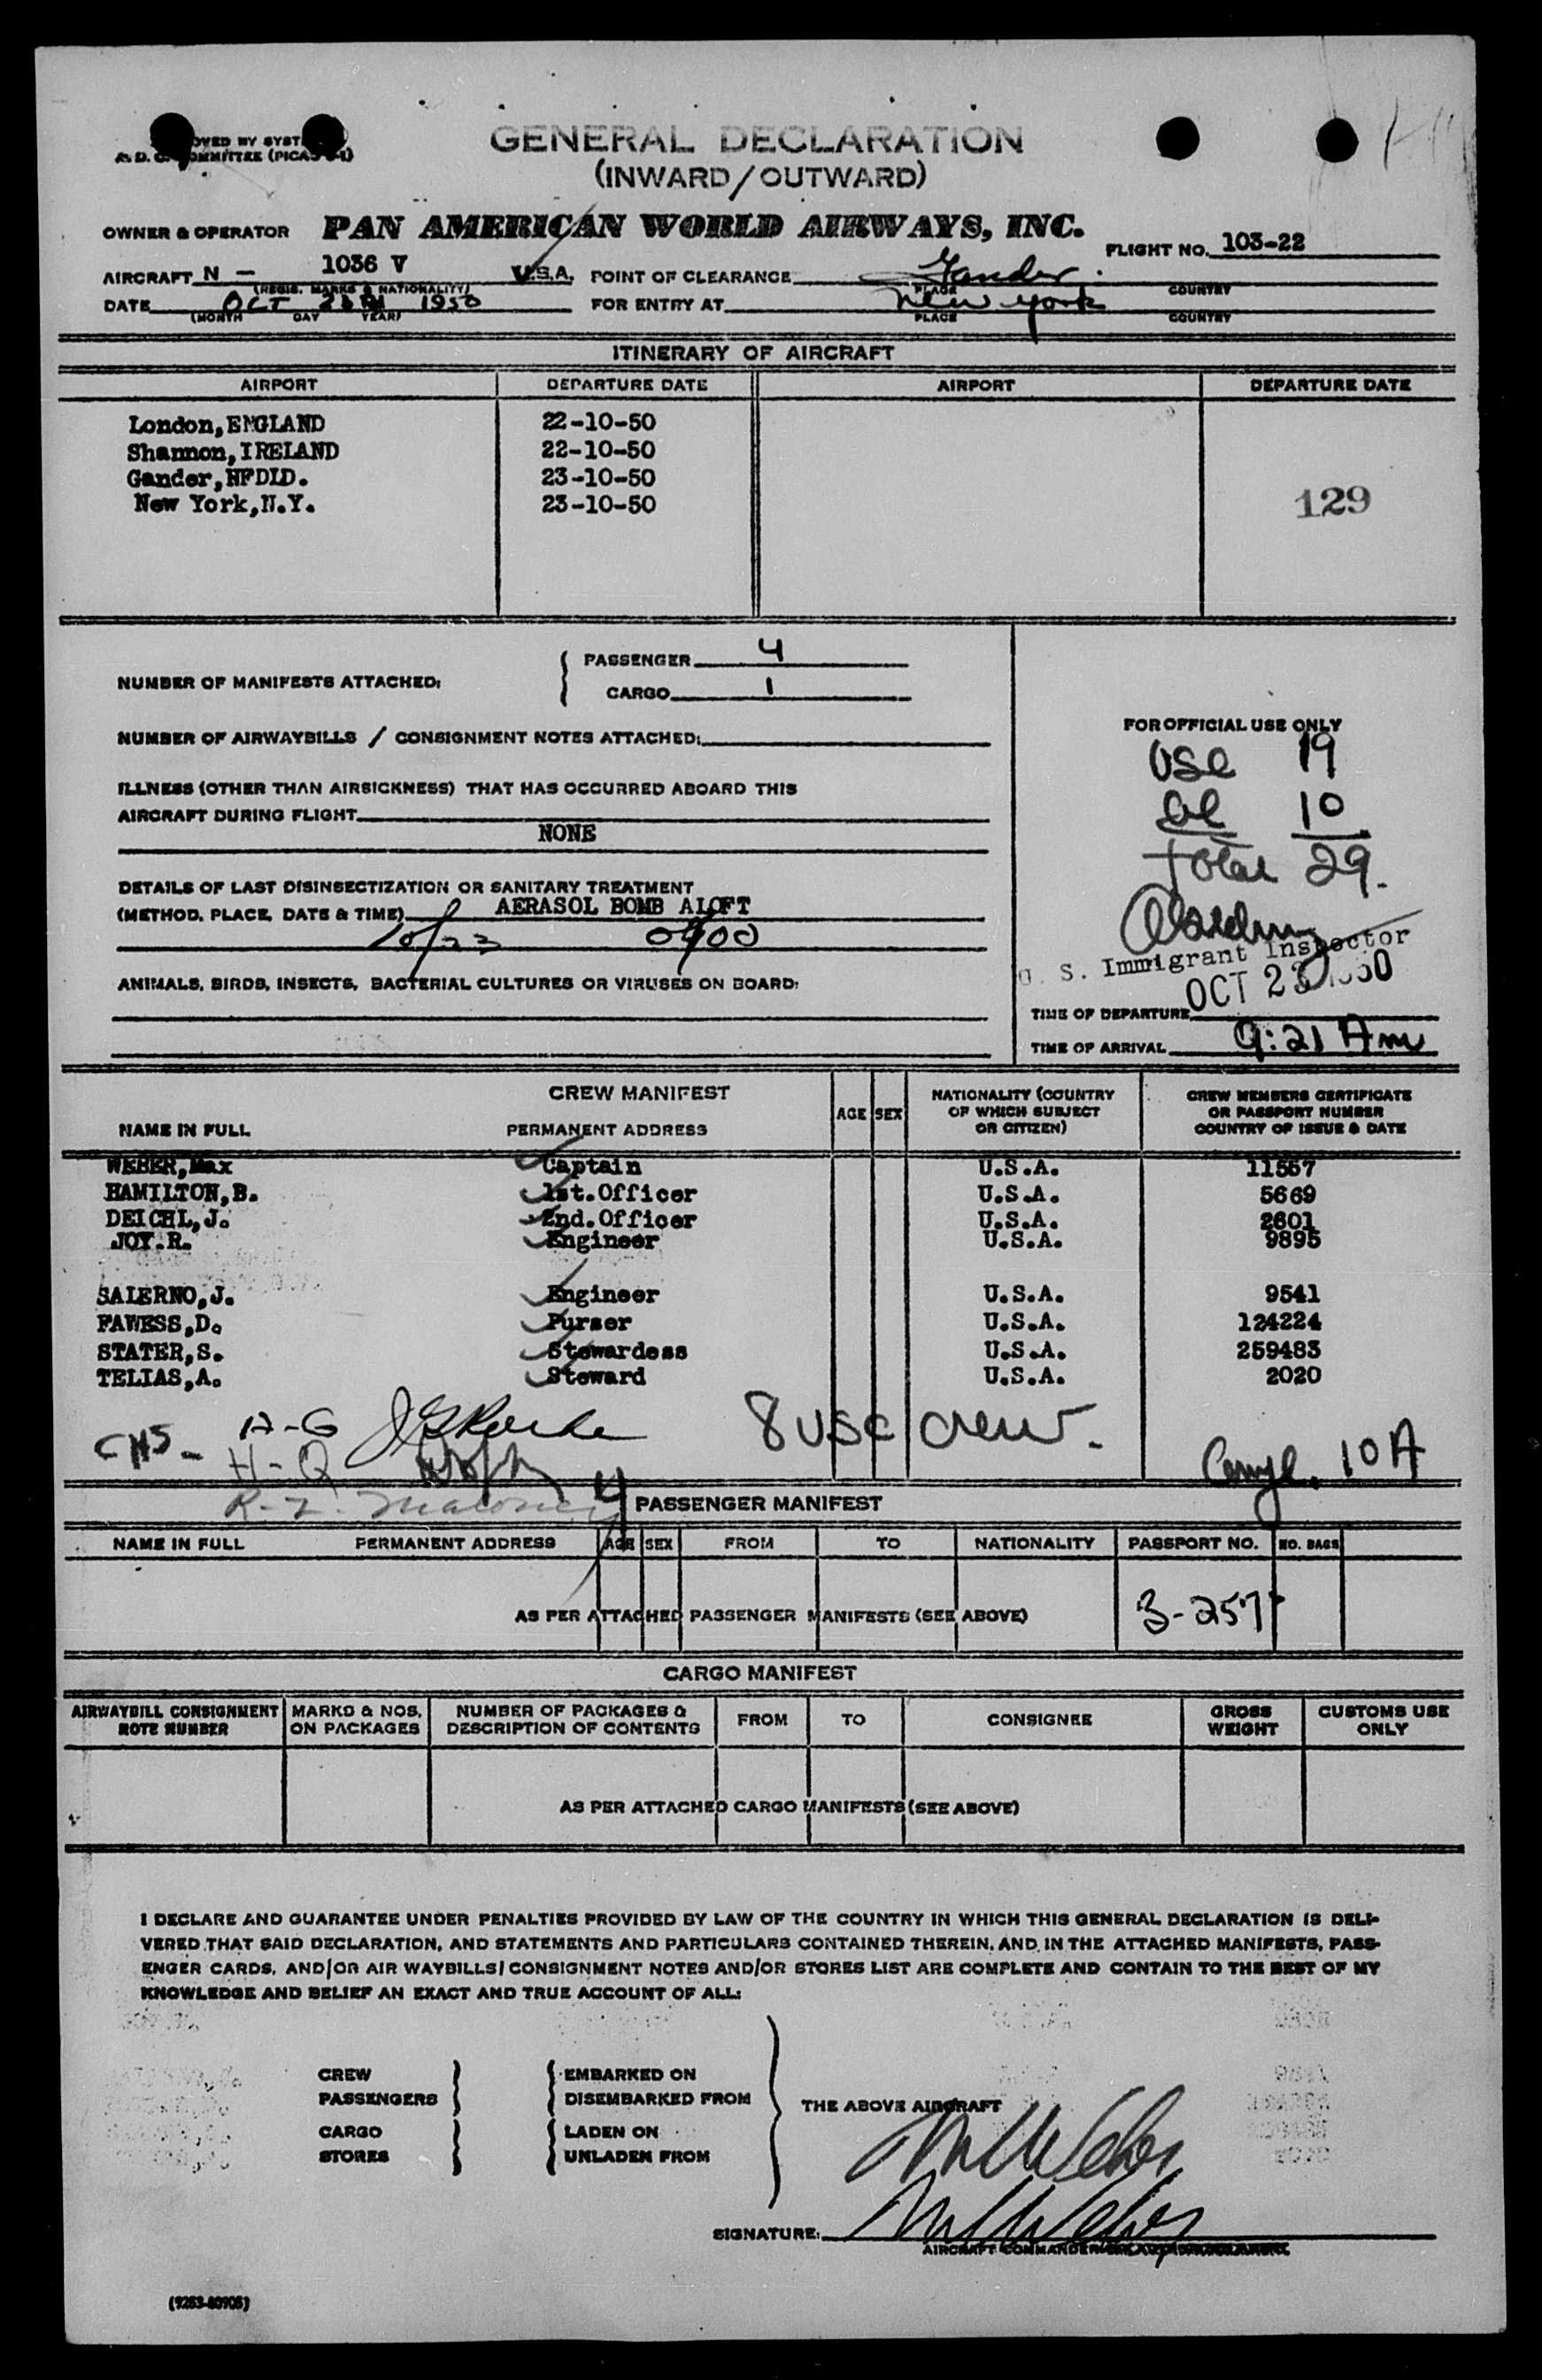 GENERAL DECLARATION
(INWARD/OUTWARD)
OWNER & OPERATOR PAN AMERICAN WORLD AIRWAYS, INC.
FLIGHT NO. 103-22
AIRCRAFT N - 1036 V U.S.A. POINT OF CLEARANCE Gander
(REGIS. MARKS & NATIONALITY) PLACE COUNTRY
DATE OCT 1950 FOR ENTRY AT New York
(MONTH DAY YEAR) PLACE COUNTRY
ITINERARY OF AIRCRAFT
AIRPORT DEPARTURE DATE AIRPORT DEPARTURE DATE
London,ENGLAND 22-10-50
Shannon,IRELAND 22-10-50
Gander,NFDLD. 23-10-50
New York,N.Y. 23-10-50
129
NUMBER OF MANIFESTS ATTACHED:
PASSENGER 4
CARGO 1
NUMBER OF AIRWAYBILLS / CONSIGNMENT NOTES ATTACHED:
ILLNESS (OTHER THAN AIRSICKNESS) THAT HAS OCCURRED ABOARD THIS
AIRCRAFT DURING FLIGHT
NONE
DETAILS OF LAST DISINSECTIZATION OR SANITARY TREATMENT
(METHOD, PLACE, DATE & TIME) AERASOL BOMB ALOFT
10/23 0900
ANIMALS, BIRDS, INSECTS, BACTERIAL CULTURES OR VIRUSES ON BOARD:
FOR OFFICIAL USE ONLY
USC 19
al 10
Total 29.
U. S. Immigrant Inspector
OCT 23 1950
TIME OF DEPARTURE
TIME OF ARRIVAL 9:21 Am
CREW MANIFEST
NAME IN FULL PERMANENT ADDRESS AGE SEX NATIONALITY (COUNTRY OF WHICH SUBJECT OR CITIZEN) CREW MEMBERS CERTIFICATE OR PASSPORT NUMBER COUNTRY OF ISSUE & DATE
WEBER,Max Captain U.S.A. 11557
HAMILTON,B. 1st.Officer U.S.A. 5669
DEICHL,J. 2nd.Officer U.S.A. 2601
JOY.R. Engineer U.S.A. 9895
SALERNO,J. Engineer U.S.A. 9541
FAWESS,D. Purser U.S.A. 124224
STATER,S. Stewardess U.S.A. 259483
TELIAS,A. Steward U.S.A. 2020
A-G
8 USC crew.
H-Q
10 A
R-Z Maloney
PASSENGER MANIFEST
NAME IN FULL PERMANENT ADDRESS AGE SEX FROM TO NATIONALITY PASSPORT NO. NO. BAGS
AS PER ATTACHED PASSENGER MANIFESTS (SEE ABOVE)
3-257
CARGO MANIFEST
AIRWAYBILL CONSIGNMENT NOTE NUMBER MARKS & NOS. ON PACKAGES NUMBER OF PACKAGES & DESCRIPTION OF CONTENTS FROM TO CONSIGNEE GROSS WEIGHT CUSTOMS USE ONLY
AS PER ATTACHED CARGO MANIFESTS (SEE ABOVE)
I DECLARE AND GUARANTEE UNDER PENALTIES PROVIDED BY LAW OF THE COUNTRY IN WHICH THIS GENERAL DECLARATION IS DELI-
VERED THAT SAID DECLARATION, AND STATEMENTS AND PARTICULARS CONTAINED THEREIN, AND IN THE ATTACHED MANIFESTS, PASS-
ENGER CARDS, AND/OR AIR WAYBILLS/CONSIGNMENT NOTES AND/OR STORES LIST ARE COMPLETE AND CONTAIN TO THE BEST OF MY
KNOWLEDGE AND BELIEF AN EXACT AND TRUE ACCOUNT OF ALL:
CREW EMBARKED ON
PASSENGERS DISEMBARKED FROM
THE ABOVE AIRCRAFT
CARGO LADEN ON
STORES UNLADEN FROM
M Weber
SIGNATURE: M Weber
AIRCRAFT COMMANDER
(9253-80905)